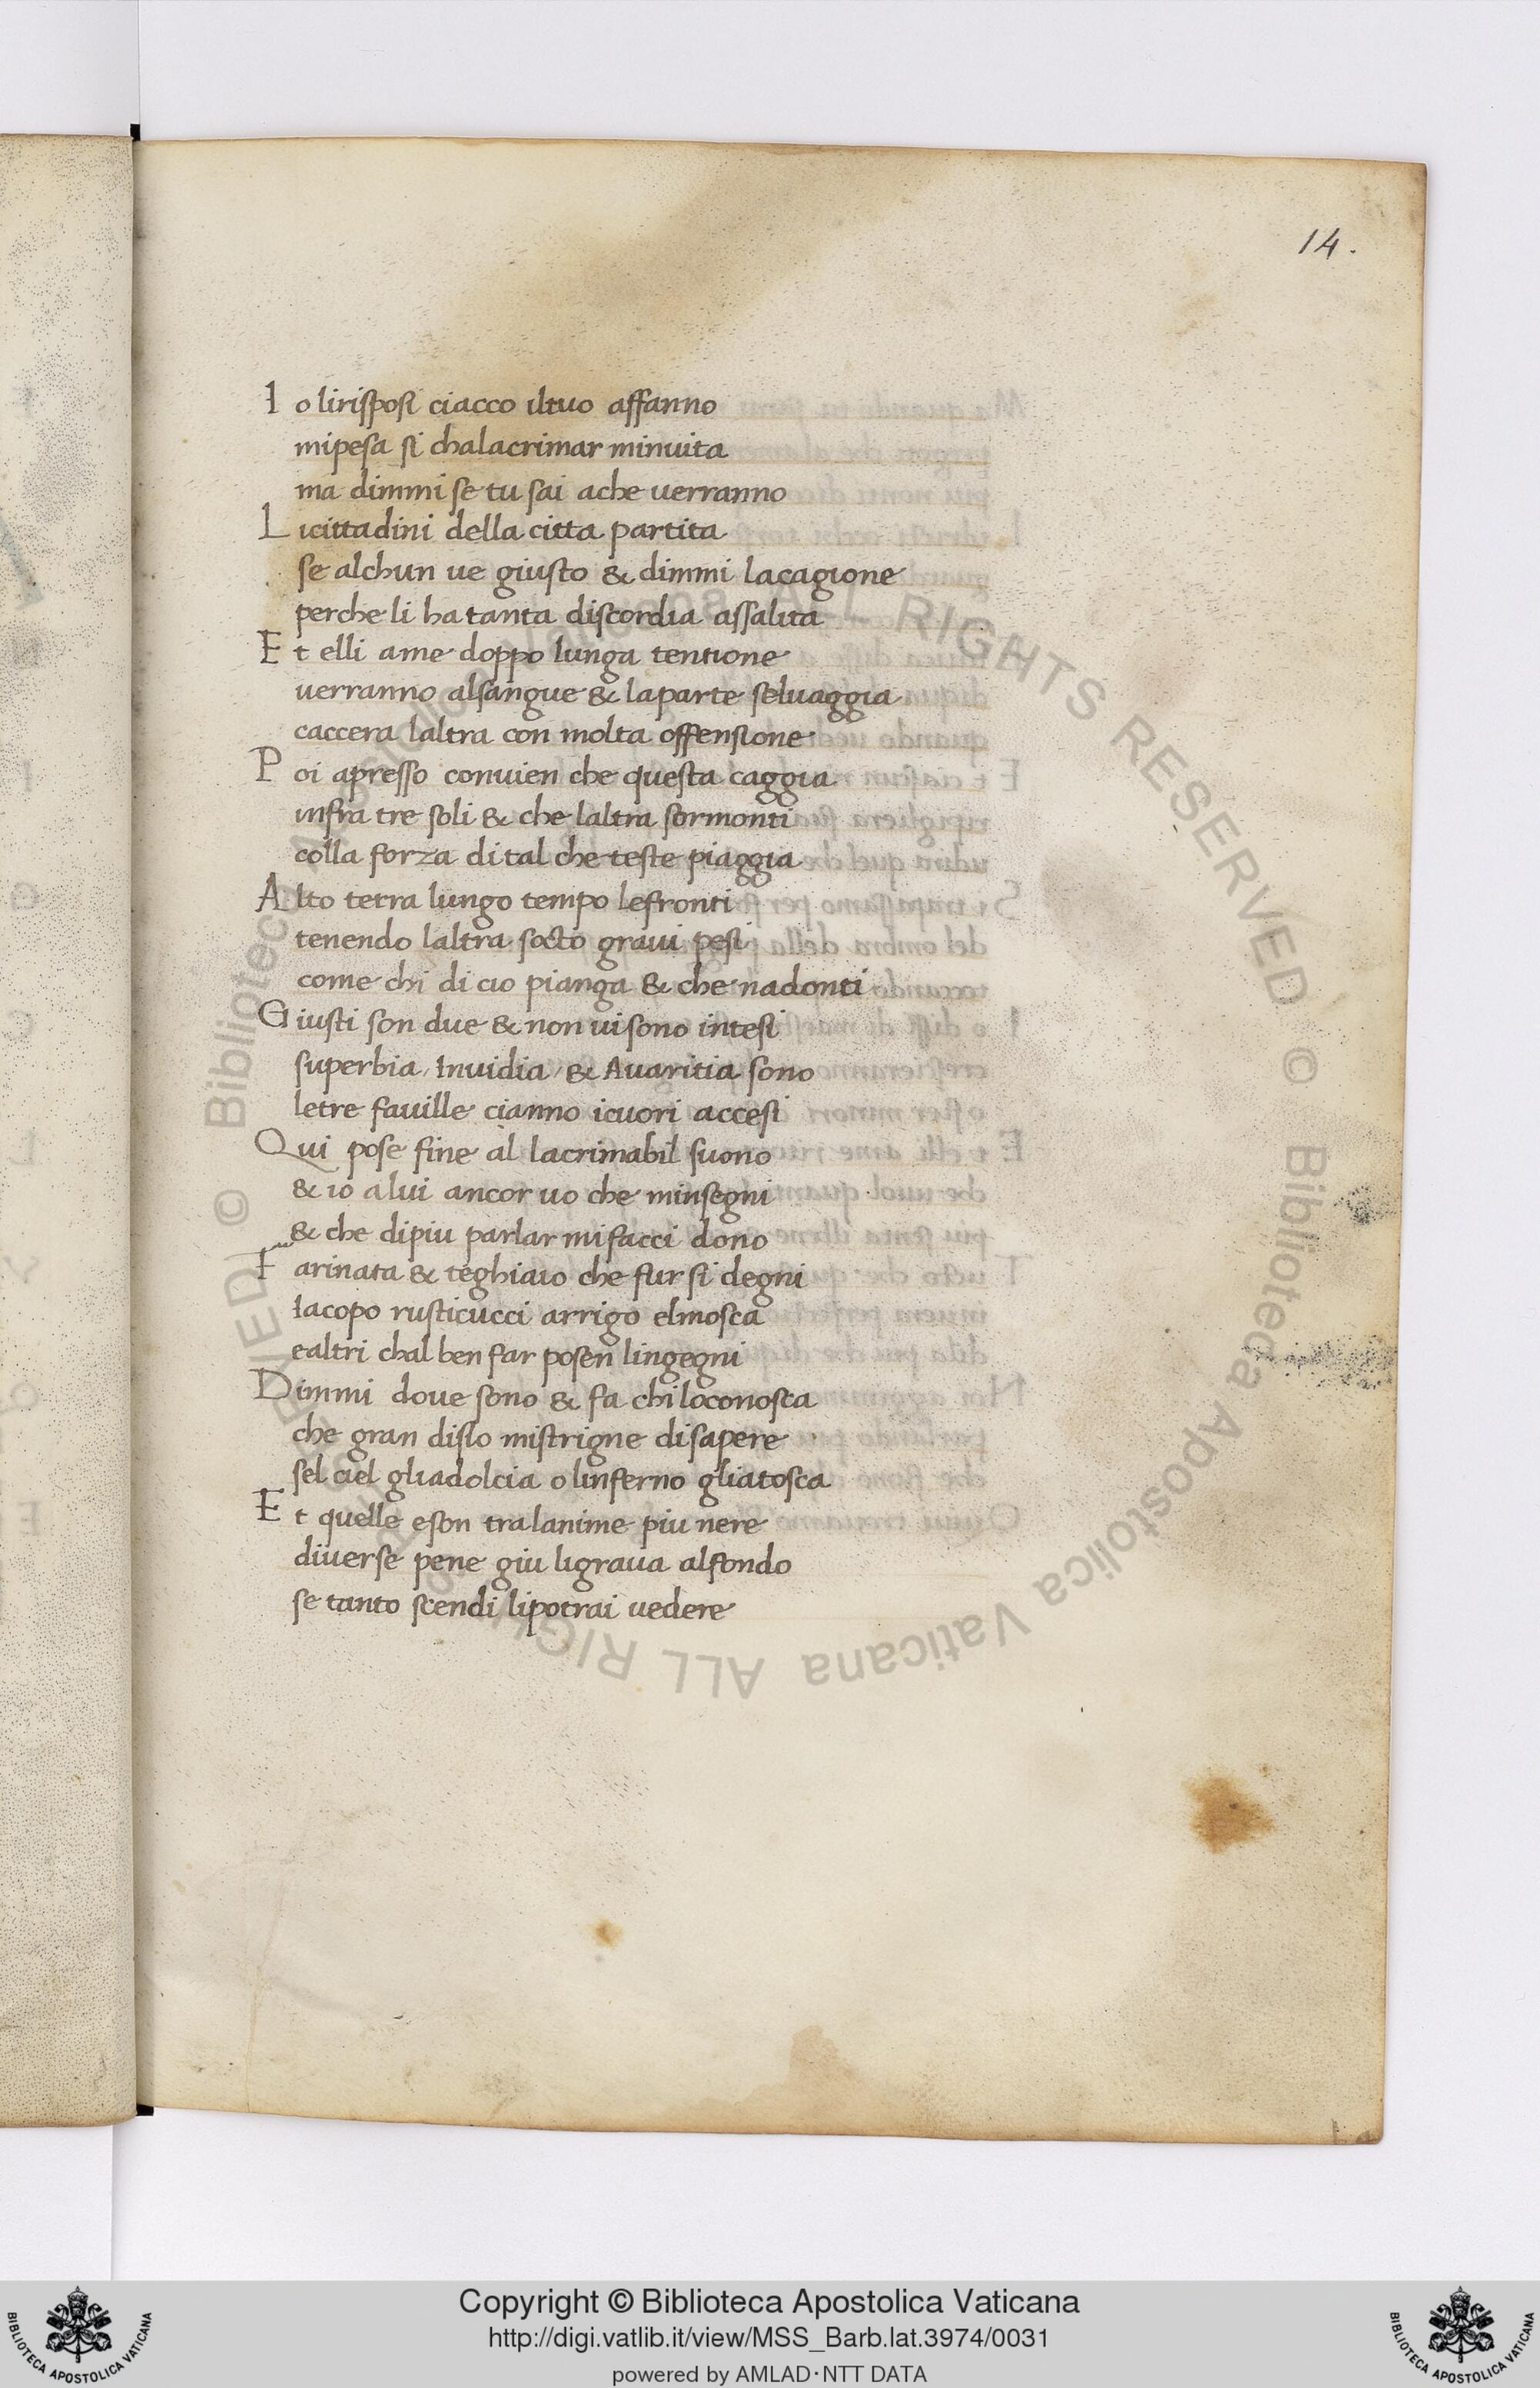 14.
Io lirisposi ciacco iltuo affanno
mipesa si chalacrimar minuita
ma dimmi se tu sai ache uerranno
Licittadini della citta partita
se alchun ue giusto & dimmi lacagione
perche li ha tanta discordia assalita
Et elli ame doppo lunga tentione
uerranno alsangue & laparte seluaggia
caccera laltra con molta offensione
Poi apresso conuien che questa caggia
infra tre soli & che laltra sormonti
colla forza dital che teste piaggia
Alto terra lungo tempo lefronti
tenendo laltra socto graui pesi
come chi di cio pianga & che nadonti
Giusti son due & non uisono intesi
superbia, Inuidia, & Auaritia sono
letre fauille cianno icuori accesi
Qui pose fine al lacrimabil suono
& io alui ancor uo che minsegni
& che dipiu parlar mifacci dono
Farinata & teghiaio che fur si degni
Iacopo rusticucci arrigo elmosca
ealtri chal ben far posen lingegni
Dimmi doue sono & fa chi loconosca
che gran disio mistrigne disapere
sel ciel gliadolcia olinferno gliatosca
Et quelle eson tralanime piu nere
diuerse pene giu ligraua alfondo
se tanto scendi lipotrai uedere
Copyright © Biblioteca Apostolica Vaticana
http://digi.vatlib.it/view/MSS_Barb.lat.3974/0031
powered by AMLAD·NTT DATA